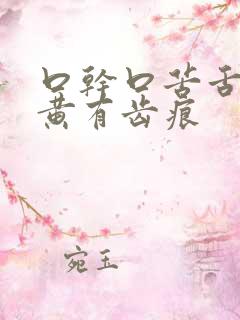 口幹口苦舌
黄有齿痕
宛玉